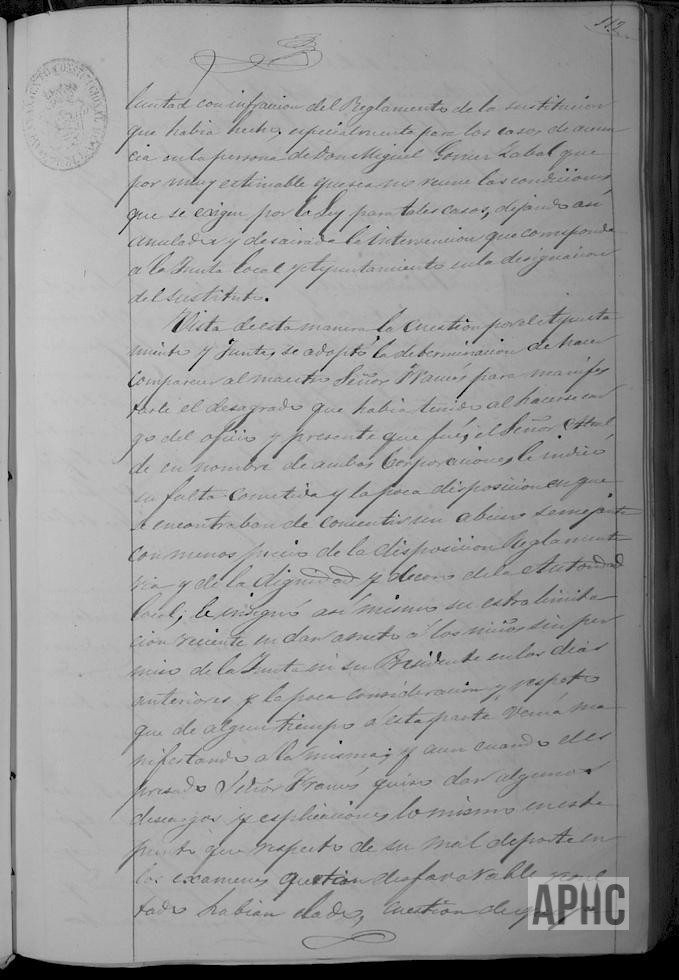 112
luntad con infraccion del Reglamento de la sustitucion
que habia hecho, especialmente para los casos de ausen
cia en la persona de Don Miguel Gomez Zabal que
por muy estimable que sea no reune las condiciones
que se exigen por la Ley para tales casos, dejando así
anulada y desairada la intervencion que corresponde
a la Junta local y Ayuntamiento en la designacion
del sustituto.
Vista de esta manera la cuestion por el Ayunta
miento y Junta, se adoptó la determinacion de hacer
comparecer al maestro Señor Francés para manifes
tarle el desagrado que habia tenido al hacerse car
go del oficio y presente que fué, el Señor Alcal
de en nombre de ambas Corporaciones le indicó
su falta cometida y la poca disposicion en que
se encontraban de consentir un abuso semejante
con menos precio de la disposicion Reglamenta
ria y de la dignidad y decoro de la Autoridad
local; le así mismo su estralimita
cion reciente en dar asueto á los niños sin per
miso de la Junta ni su Presidente en los dias
anteriores y la poca consideracion y respeto
que de algun tiempo á esta parte venia ma
nifestando a la misma; y aun cuando el es
presado Señor Francés quiso dar algunos
descargos y esplicaciones lo mismo en este
punto que respecto de su mal deporte en
los examenes que tan desfavorable resul
tado habian dado, cuestion de
APHC